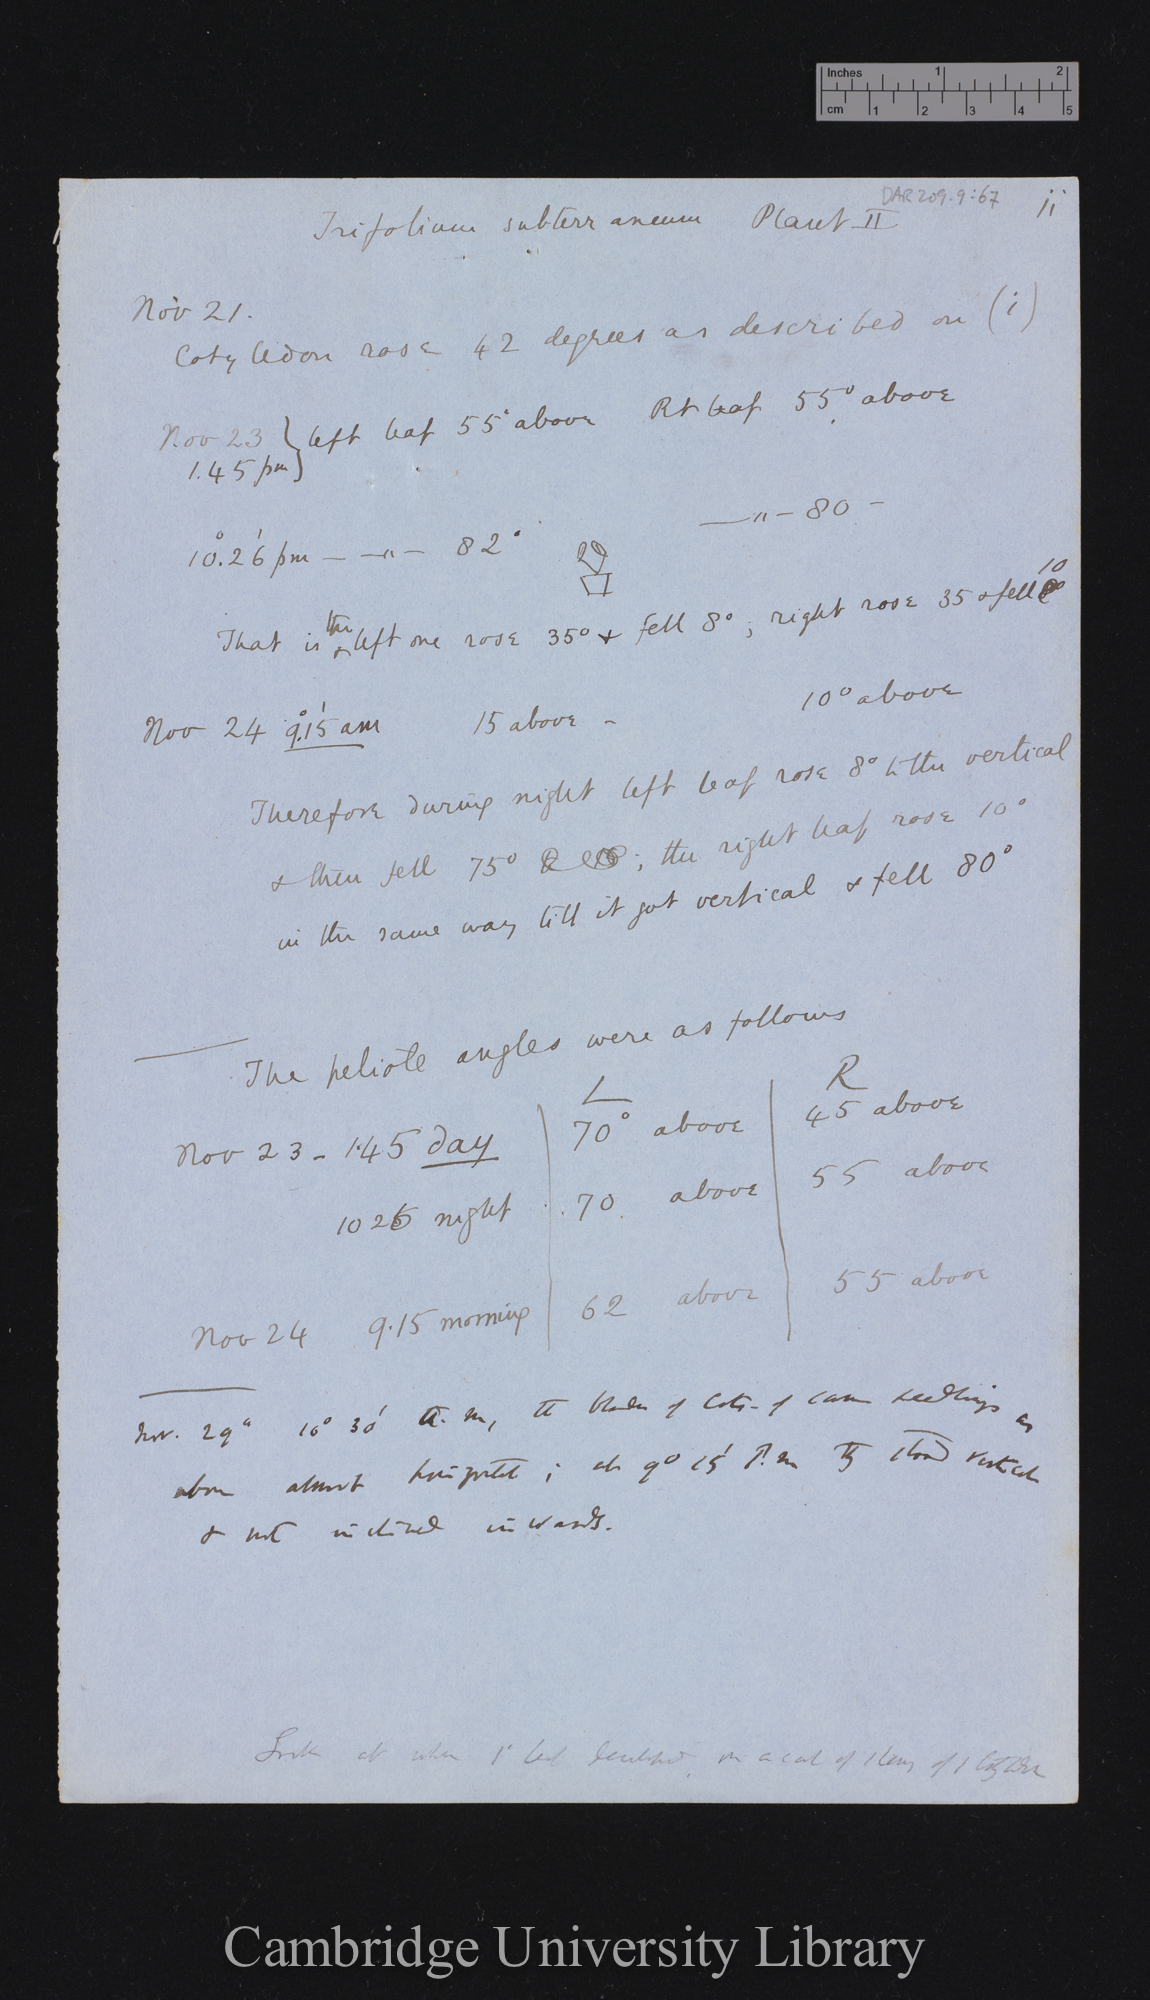 Inches 1 2
cm 1 2 3 4 5
DAR 209.9:67
ii
Trifolium subterraneum Plant II
Nov 21.
Cotyledon rose 42 degrees as described on (i)
Nov 23 } left leaf 55° above Rt leaf 55° above
1.45 pm
10°.26' pm — —"— 82° —"— 80 —
That is the left one rose 35° & fell 8°; right rose 35 & fell 10
Nov 24 9°.15' am 15 above - 10° above
Therefore during night left leaf rose 8° to the vertical
& then fell 75°; the right leaf rose 10°
in the same way till it got vertical & fell 80°
The petiole angles were as follows
L R
Nov 23 - 1.45 day 70° above 45 above
10 26 night 70 above 55 above
Nov 24 9.15 morning 62 above 55 above
Nov. 29th 10° 30' a.m, the blades of Cots. of same seedlings as
above almost horizontal; at 9° 15' P.m they stood vertical
& not inclined inwards.
Look at when 1st leaf developed, on account of